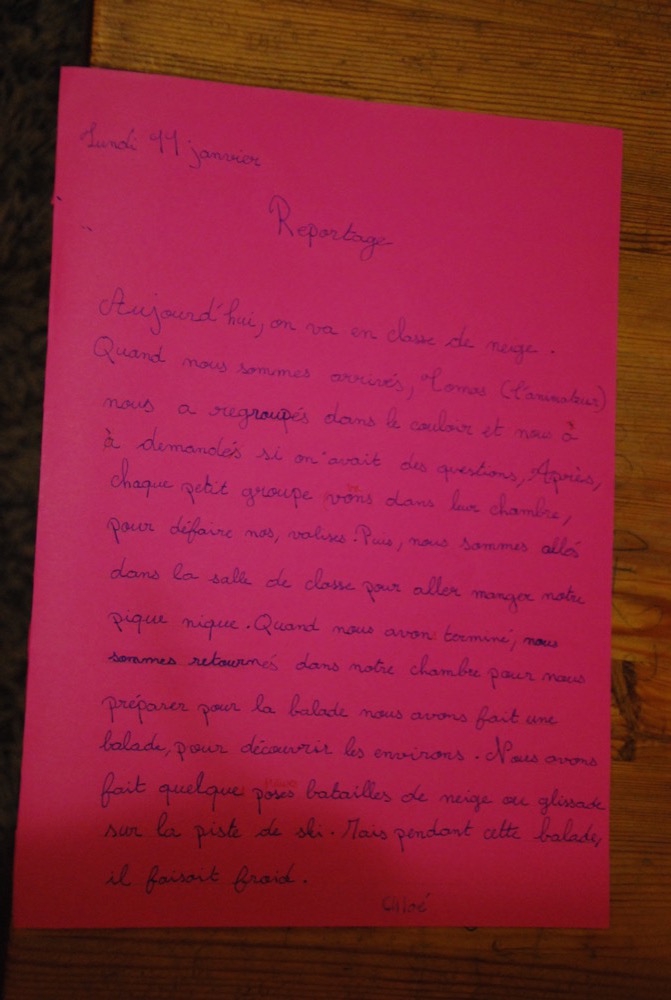 Lundi 11 janvier
Reportage
Aujourd'hui, on va en classe de neige.
Quand nous sommes arrivés, Tomas (l'animateur)
nous a regroupés dans le couloir et nous à
à demandés si on avait des questions, Après,
chaque petit groupe vons dans leur chambre,
pour défaire nos, valises. Puis, nous sommes allés
dans la salle de classe pour aller manger notre
pique nique. Quand nous avons terminé, nous
sommes retournés dans notre chambre pour nous
préparer pour la balade nous avons fait une
balade, pour découvrir les environs. Nous avons
fait quelque poses batailles de neige ou glissade
sur la piste de ski. Mais pendant cette balade,
il faisait froid.
Chloé